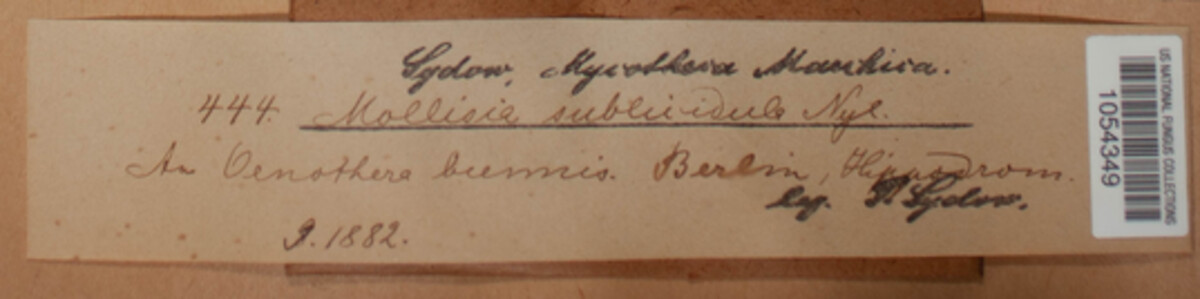 Sydow, Mycotheca Marchica.
444. Mollisia sublividula Nyl.
An Oenothera biennis. Berlin, Hippodrom.
leg. P. Sydow.
9. 1882.
US NATIONAL FUNGUS COLLECTIONS
1054349